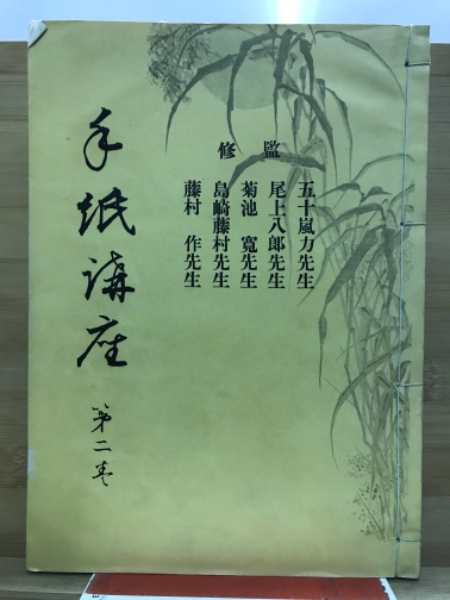 監修
五十嵐力先生
尾上八郎先生
菊池 寛先生
島崎藤村先生
藤村 作先生
手紙講座
第二巻